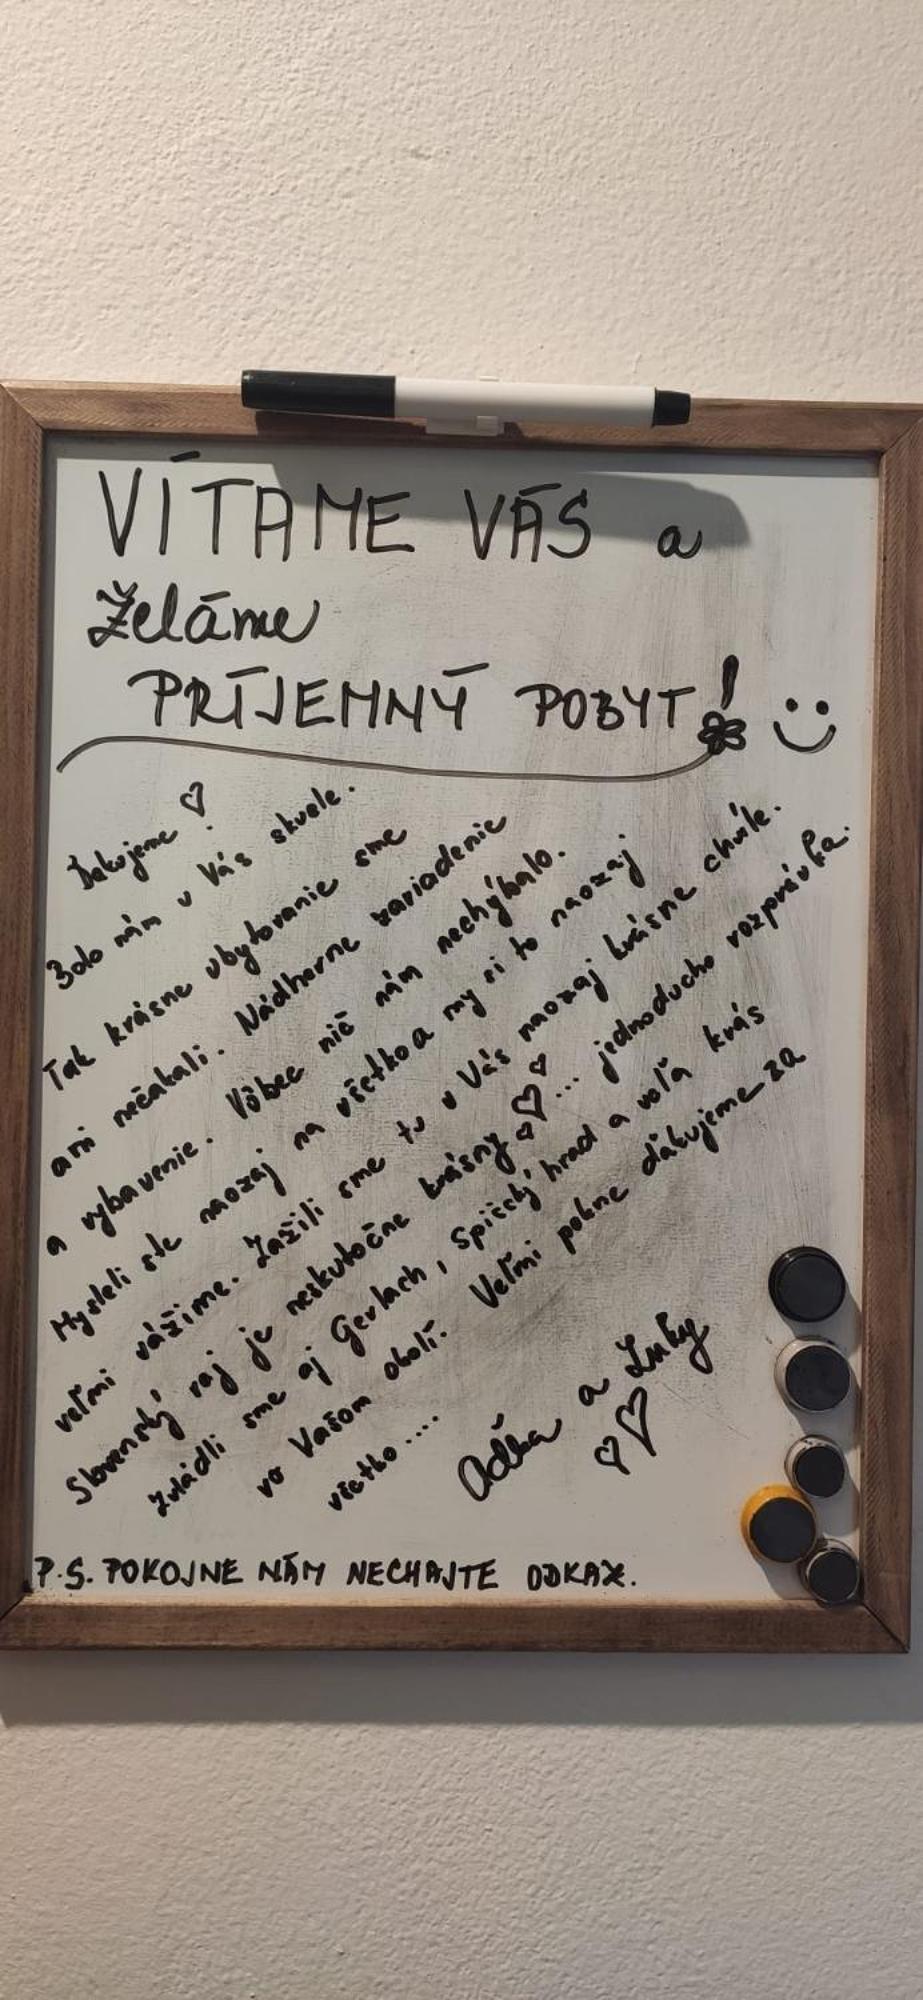 VÍTAME VÁS a
želáme
PRÍJEMNÝ POBYT!
Ďakujeme ♡
Bolo nám u Vás skvele.
Tak krásne ubytovanie sme
ani nečakali. Nádherne zariadenie
a vybavenie. Vôbec nič nám nechýbalo.
Mysleli ste naozaj na všetko a my si to naozaj
veľmi vážime. Zažili sme tu u Vás naozaj krásne chvíle.
Slovenský raj je neskutočne krásny ♡... jednoducho rozprávka.
zvládli sme aj Gerlach, Spišský hrad a voľa krás
vo Vašom okolí. Veľmi pekne ďakujeme za
všetko....
Aďka a Luky
P.S. POKOJNE NÁM NECHAJTE ODKAZ.